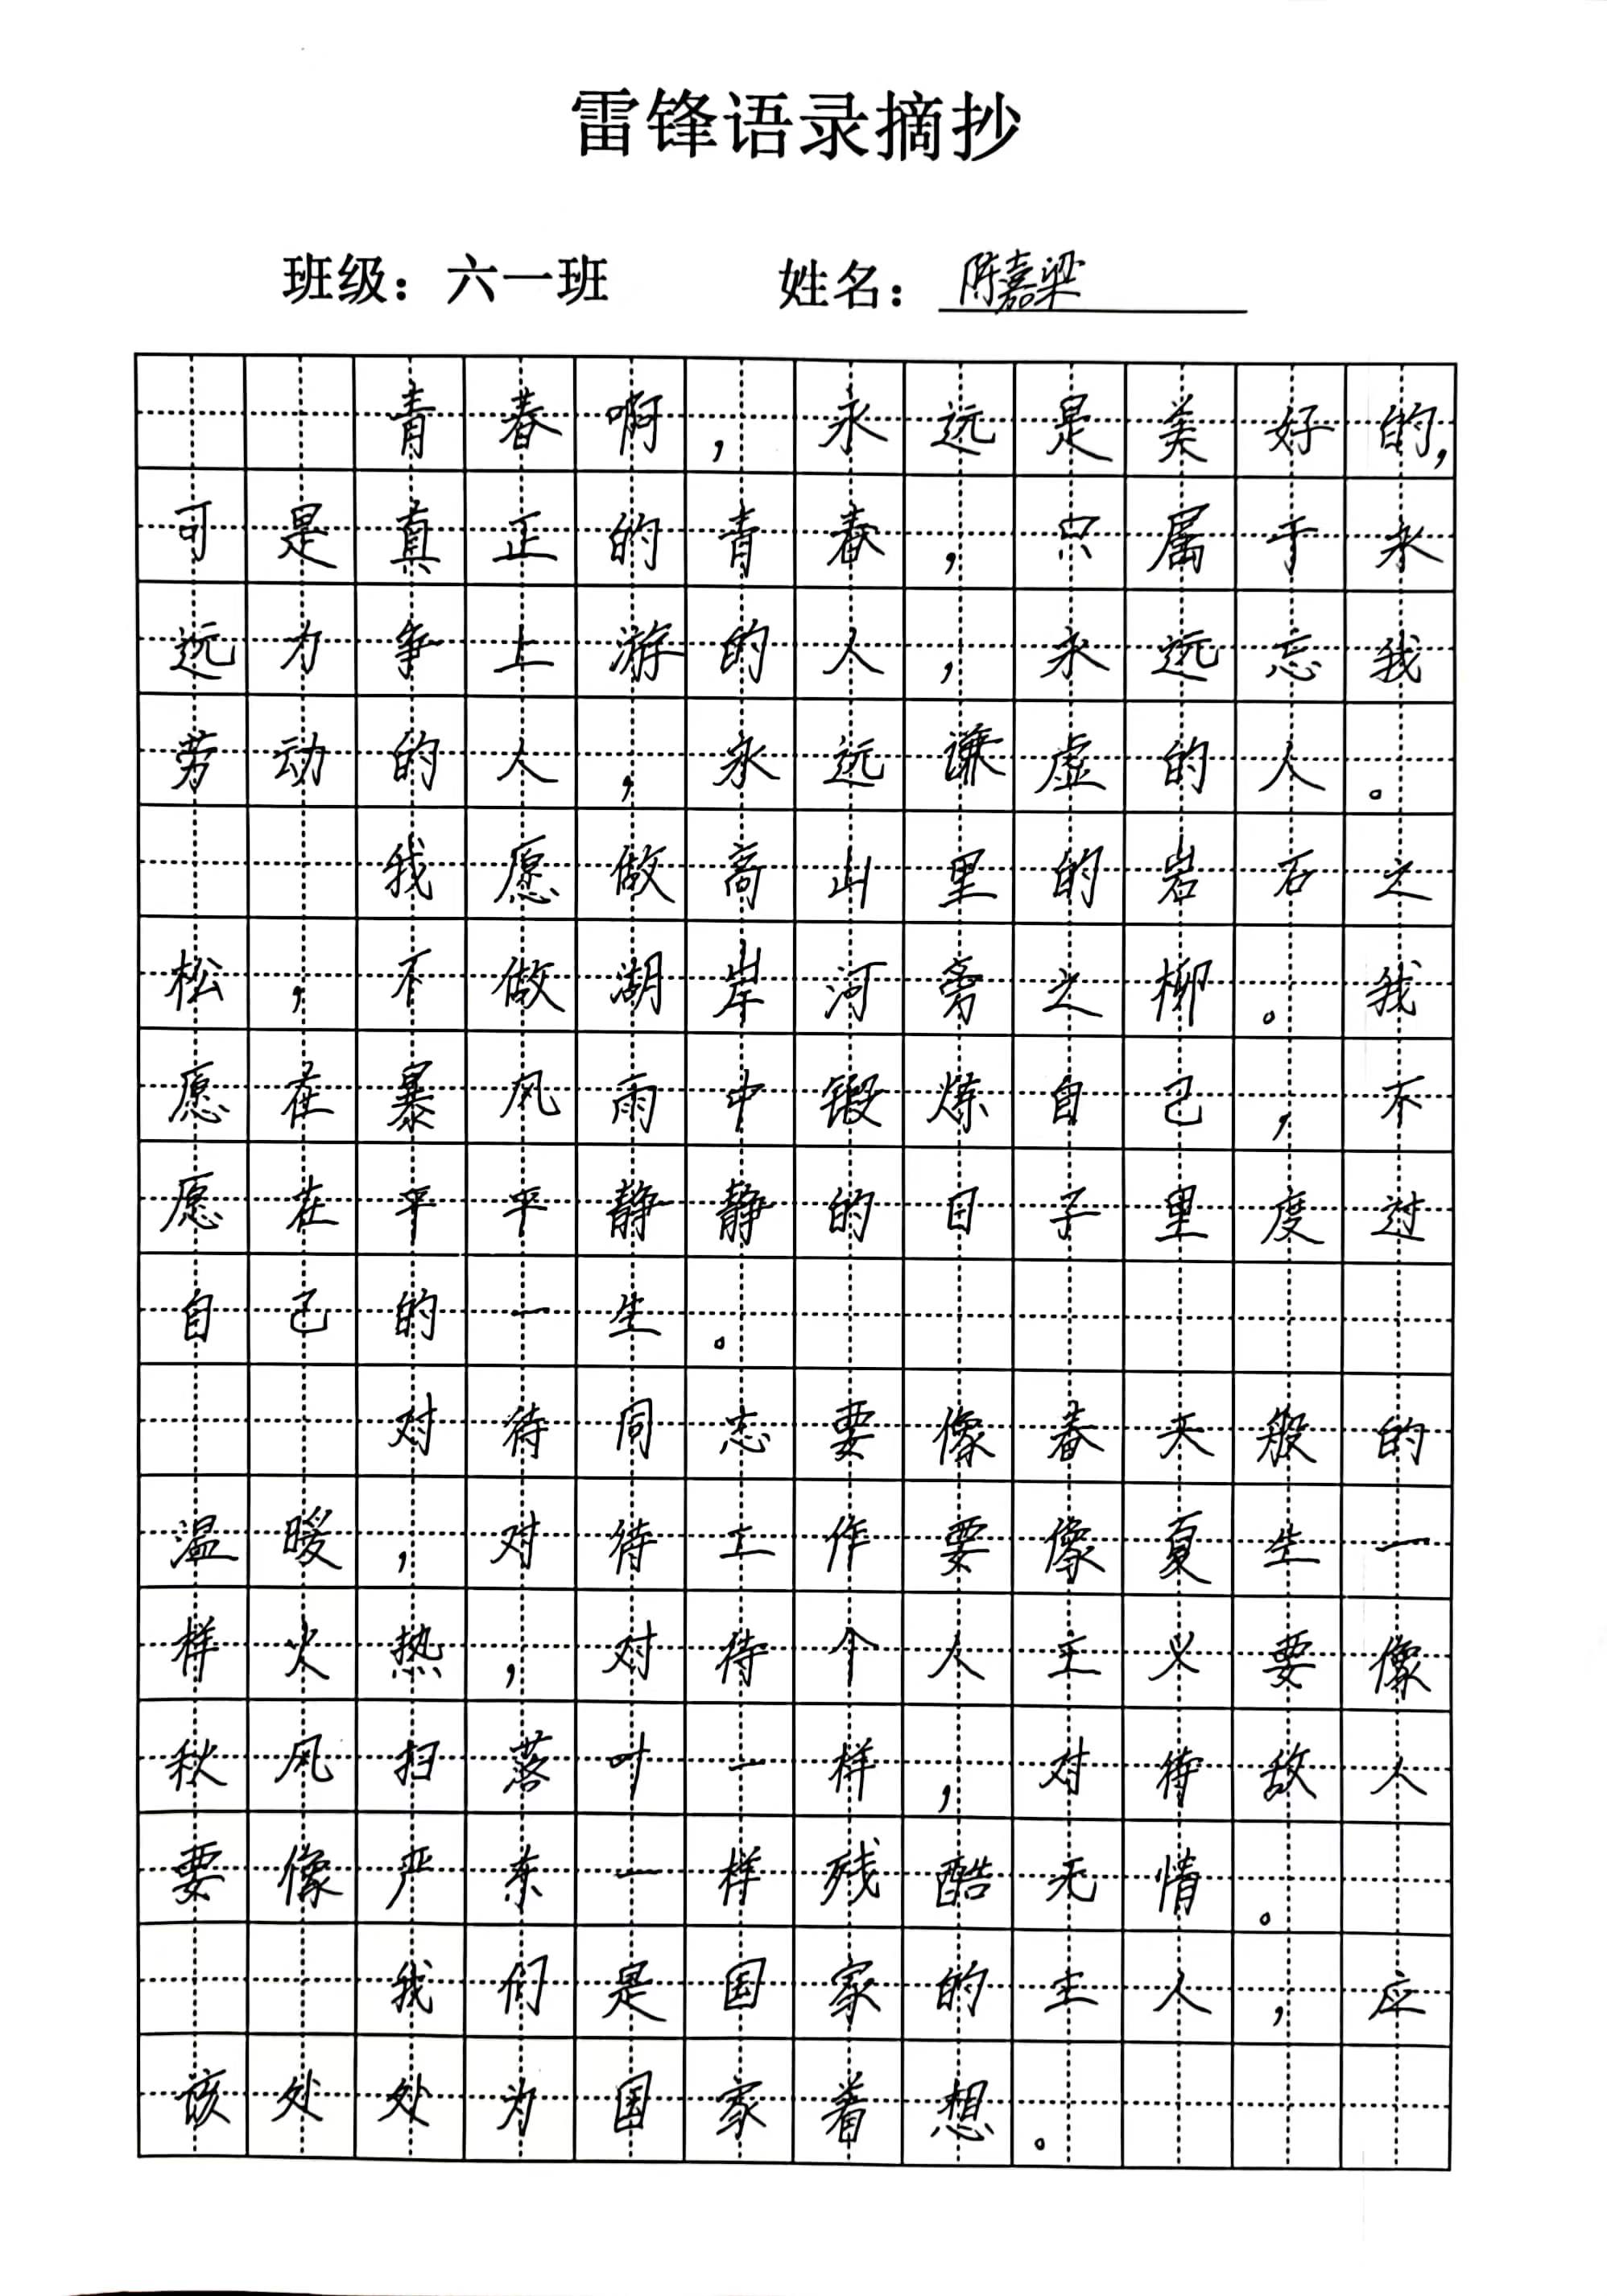 雷锋语录摘抄
班级：六一班 姓名：陈嘉梁
青春啊，永远是美好的，
可是真正的青春，只属于永
远力争上游的人，永远忘我
劳动的人，永远谦虚的人。
我愿做高山里的岩石之
松，不做湖岸河旁之柳。我
愿在暴风雨中锻炼自己，不
愿在平平静静的日子里度过
自己的一生。
对待同志要像春天般的
温暖，对待工作要像夏生一
样火热，对待个人王义要像
秋风扫落叶一样，对待敌人
要像严东一样残酷无情。
我们是国家的主人，应
该处处为国家着想。